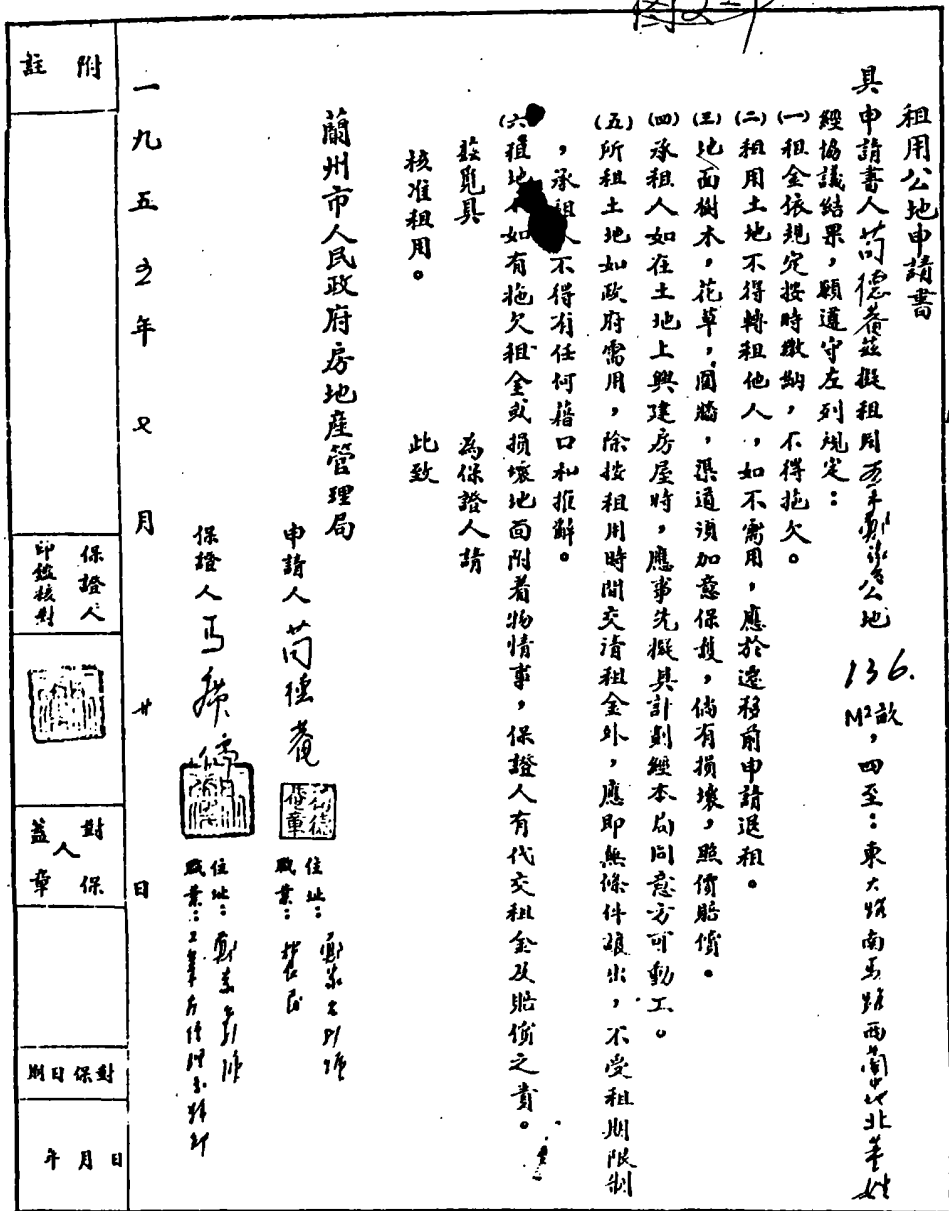 租用公地申請書
具申請書人苟德菴茲擬租用公地136.M²畝，四至：東大路南馬路西蘭中地北姓
經協議結果，願遵守左列規定：
(一)租金依規定按時繳納，不得拖欠。
(二)租用土地不得轉租他人，如不需用，應於遷移前申請退租。
(三)地面樹木，花草，圍牆，渠道須加意保護，倘有損壞，照價賠償。
(四)承租人如在土地上興建房屋時，應事先擬具計劃經本局同意方可動工。
(五)所租土地如政府需用，除按租用時間交清租金外，應即無條件讓出，不受租期限制
，承租人不得有任何藉口和推辭。
(六)租地如有拖欠租金或損壞地面附着物情事，保證人有代交租金及賠償之責。
茲覓具 為保證人請
核准租用。 此致
蘭州市人民政府房地產管理局
申請人 苟德菴 住址：鄭家 職業：
保證人 馬 住址：鄭家 職業：
一九五 年 月 廿 日
附註
保證人印鑑核對
對保人蓋章
對保日期
年月日